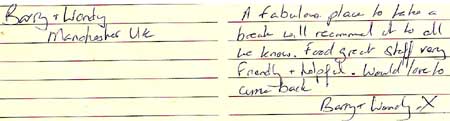 Barry + Wendy
Manchester UK
A fabulous place to take a
break will recommend it to all
we know. Food great staff very
Friendly + helpful. Would love to
come back
Barry + Wendy X